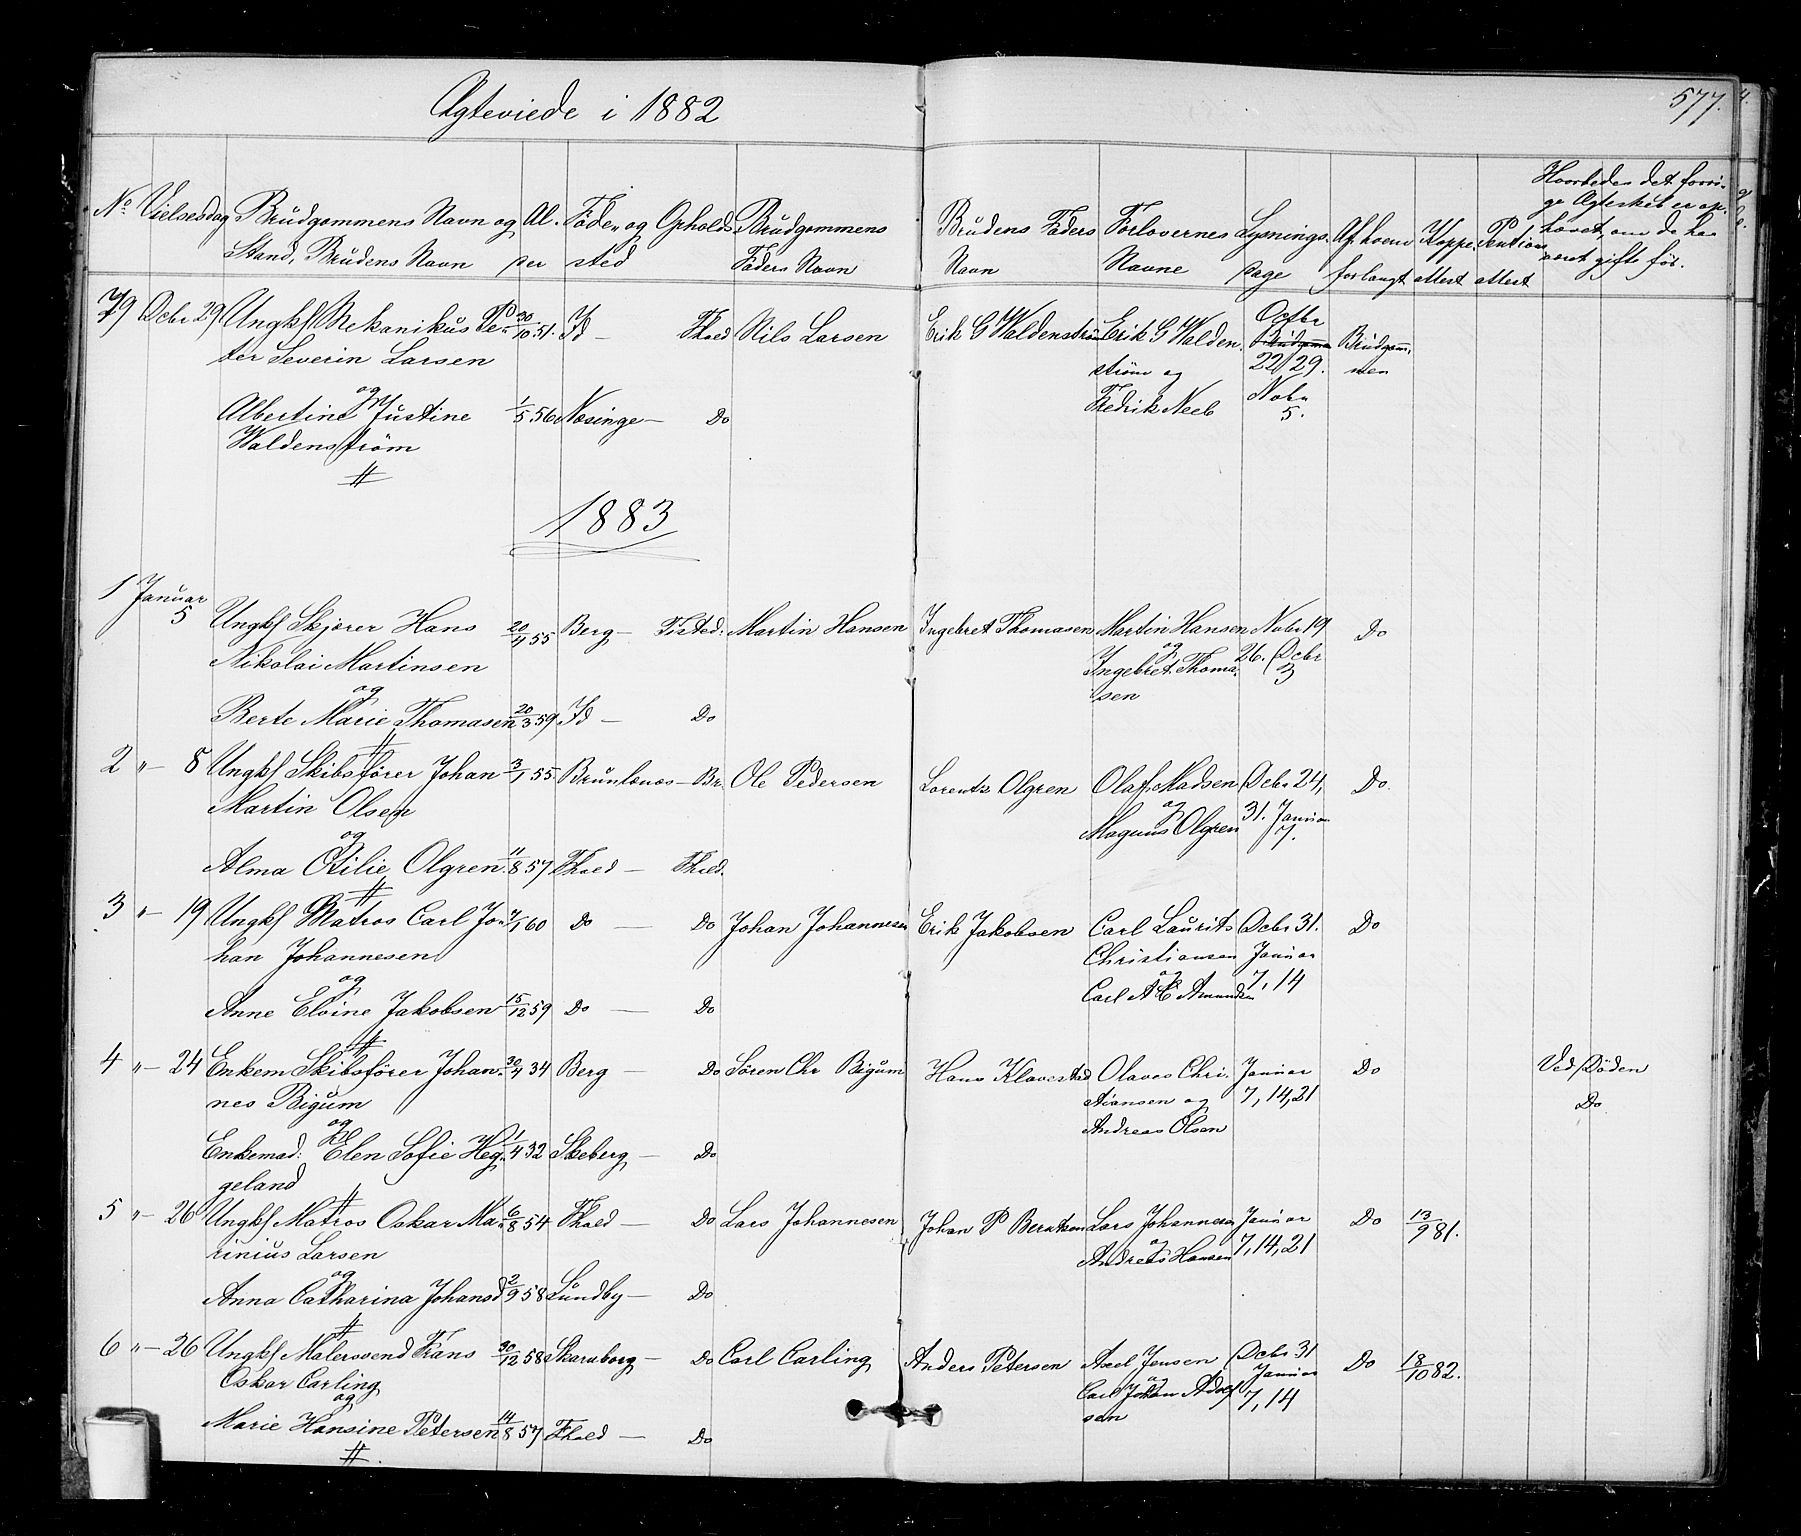 Ægteviede i 1882
577.
No Vielsesdag Brudgommens Navn og Stand, Brudens Navn Alder Føde- og Opholdssted Brudgommens Faders Navn Brudens Faders Navn Forlovernes Navne Lysningsdage Af hvem forlangt Koppeattest
Hvorledes det forri-
ge Ægteskab er op-
hævet, om de har
været gifte før.
79 Dcbr 29 Ungkl Mekanikus Pe- 30/10 51. Id — Fhald Nils Larsen Erik G Waldenstrøm Erik G Walden- Octbr
ter Severin Larsen strøm og 22, 29. Brudgom-
men
og Fredrik Neeb Nobr
Albertine Justine 1/5 56 Næsinge — Do 5.
Waldenstrøm
1883
1 Januar
5 Ungkl Skjærer Hans 20/4 55 Berg — Tisted: Martin Hansen Ingebret Thomasen Martin Hansen Nobr 19 Do
Nikolai Martinsen og 26. Dcbr
og Ingebret Thoma- 3
sen
Berte Marie Thomasen 20/3 59 Id — Do
2 " — 8 Ungkl Skibsfører Johan 3/1 55. Brunlanæs — Br. Ole Pedersen Lorents Olgren Olaf Madsen Dcbr 24, Do.
Martin Olsen og 31. Januar
og Magnus Olgren 7.
Alma Otilie Olgren 11/8 57 Fhald — Fhald.
3 " — 19 Ungkl Matros Carl Jo- 7/1 60 Do — Do Johan Johannesen Erik Jakobsen Carl Laurits Dcbr 31. Do
han Johannesen Christiansen Januar
og og 7, 14
Carl A C Amundsen
Anne Elvine Jakobsen 15/12 59 Do — Do
4 " — 24 Enkem Skibsfører Johan- 30/4 34 Berg — Do Søren Chr Bigum Hans Klavestad Olaves Chri- Januar Do Ved Døden
nes Bigum stiansen og 7, 14, 21 Do
og Andreas Olsen
Enkemad: Elen Sofie Heg- 1/4 32 Skeberg — Do
geland
5 " — 26 Ungkl Matros Oskar Ma- 6/8 54 Fhald — Do Lars Johannesen Johan P Berntsen Lars Johannesen Januar Do 13/9 81.
rinius Larsen og 7, 14, 21
og Andreas Hansen
Anna Catharina Johansd 2/9 58 Lundby — Do
6 " — 26 Ungkl Malersvend Frans 30/12 58 Skaraborg — Do Carl Carling Anders Petersen Axel Jensen Dcbr 31 Do 18/10 82.
Oskar Carling og Januar
og Carl Johan Adolf- 7, 14
sen
Marie Hansine Petersen 14/8 57 Fhald — Do